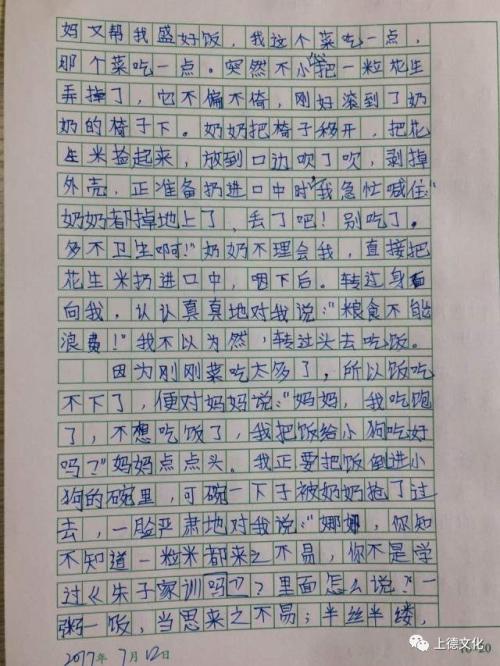 妈又帮我盛好饭，我这个菜吃一点，
那个菜吃一点。突然不小心把一粒花生
弄掉了，它不偏不倚，刚好滚到了奶
奶的椅子下。奶奶把椅子移开，把花
生米捡起来，放到口边吹了吹，剥掉
外壳，正准备扔进口中时"我急忙喊住"
奶奶都掉地上了，丢了吧！别吃了。
多不卫生啊！"奶奶不理会我，直接把
花生米扔进口中，咽下后。转过身面
向我，认认真真地对我说："粮食不能
浪费！"我不以为然，转过头去吃饭。
因为刚刚菜吃太多了，所以饭吃
不下了，便对妈妈说："妈妈，我吃饱
了，不想吃饭了，我把饭给小狗吃好
吗？"妈妈点点头。我正要把饭倒进小
狗的碗里，可碗一下子被奶奶抢了过
去，一脸严肃地对我说："娜娜，你知
不知道一粒米都来之不易，你不是学
过《朱子家训吗》？里面怎么说？一
粥一饭，当思来之不易；半丝半缕，
2017年7月12日
上德文化
20